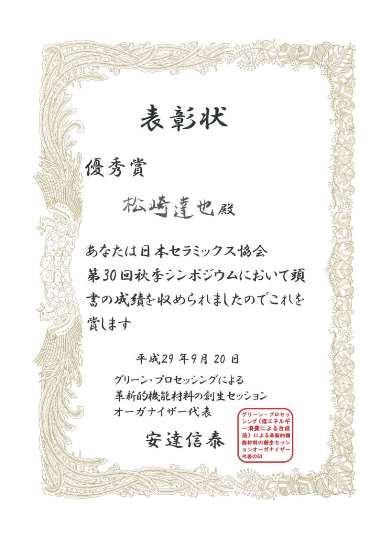 表彰状
優秀賞
松崎達也殿
あなたは日本セラミックス協会
第30回秋季シンポジウムにおいて頭
書の成績を収められましたのでこれを
賞します
平成29年9月20日
グリーン・プロセッシングによる
革新的機能材料の創生セッション
オーガナイザー代表
安達信泰
グリーン・プロセッ
シング(低エネルギ
ー消費による合成
法)による革新的機
能材料の創生セッシ
ョンオーガナイザー
代表の印